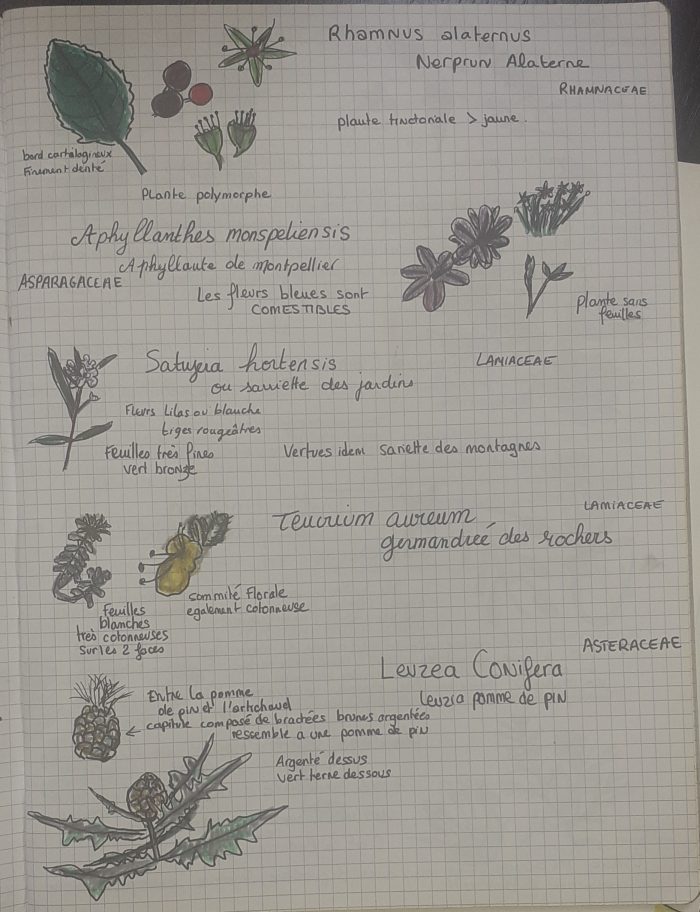 Rhamnus alaternus
Nerprun Alaterne
RHAMNACEAE
plante tinctoriale > jaune.
bord cartilagineux
finement denté
Plante polymorphe
Aphyllanthes monspeliensis
Aphyllante de montpellier
ASPARAGACEAE
Les fleurs bleues sont
COMESTIBLES
plante sans
feuilles
Satujeia hortensis
ou sariette des jardins
LAMIACEAE
Fleurs Lilas ou blanche
tiges rougeâtres
Feuilles très fines
vert bronze
Vertues idem sariette des montagnes
LAMIACEAE
Teucrium aureum
germandreé des rochers
Sommité Florale
egalement cotonneuse
Feuilles
blanches
très cotonneuses
Sur les 2 faces
ASTERACEAE
Leuzea Conifera
leuzia pomme de PIN
Entre la pomme
de pin et l'artichaud
capitule composé de bractées brunes argentées
ressemble a une pomme de pin
Argenté dessus
vert terne dessous